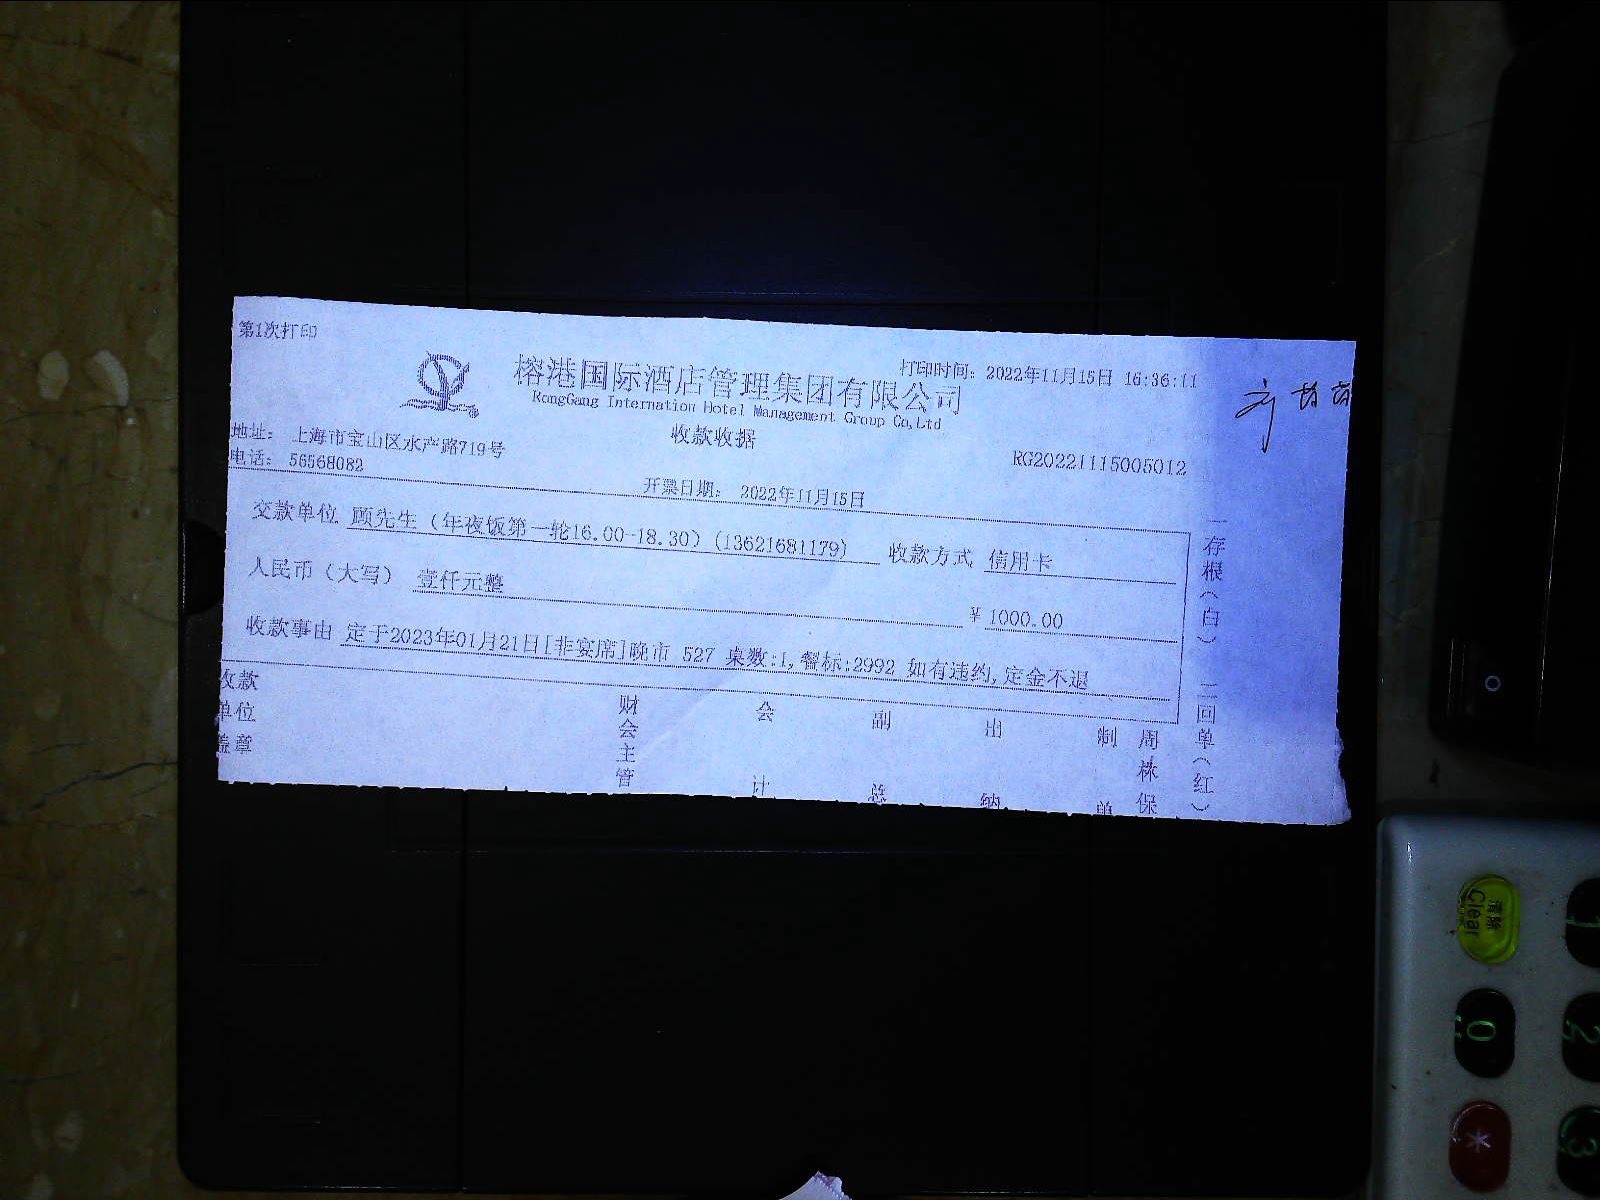 第1次打印
打印时间：2022年11月15日 16:36:11
榕港国际酒店管理集团有限公司
RongGang Internation Hotel Management Group Co,Ltd
收款收据
地址： 上海市宝山区水产路719号
电话： 56568082
RG20221115005012
开票日期： 2022年11月15日
交款单位 顾先生（年夜饭第一轮16.00-18.30）(13621681179) 收款方式 信用卡
人民币（大写） 壹仟元整 ￥ 1000.00
收款事由 定于2023年01月21日[非宴席]晚市 527 桌数:1,餐标:2992 如有违约,定金不退
收款单位盖章
财会主管
会计
副总
出纳
制单
周株保
一存根（白）
二回单（红）
清除
Clear
0
*
1
2
3